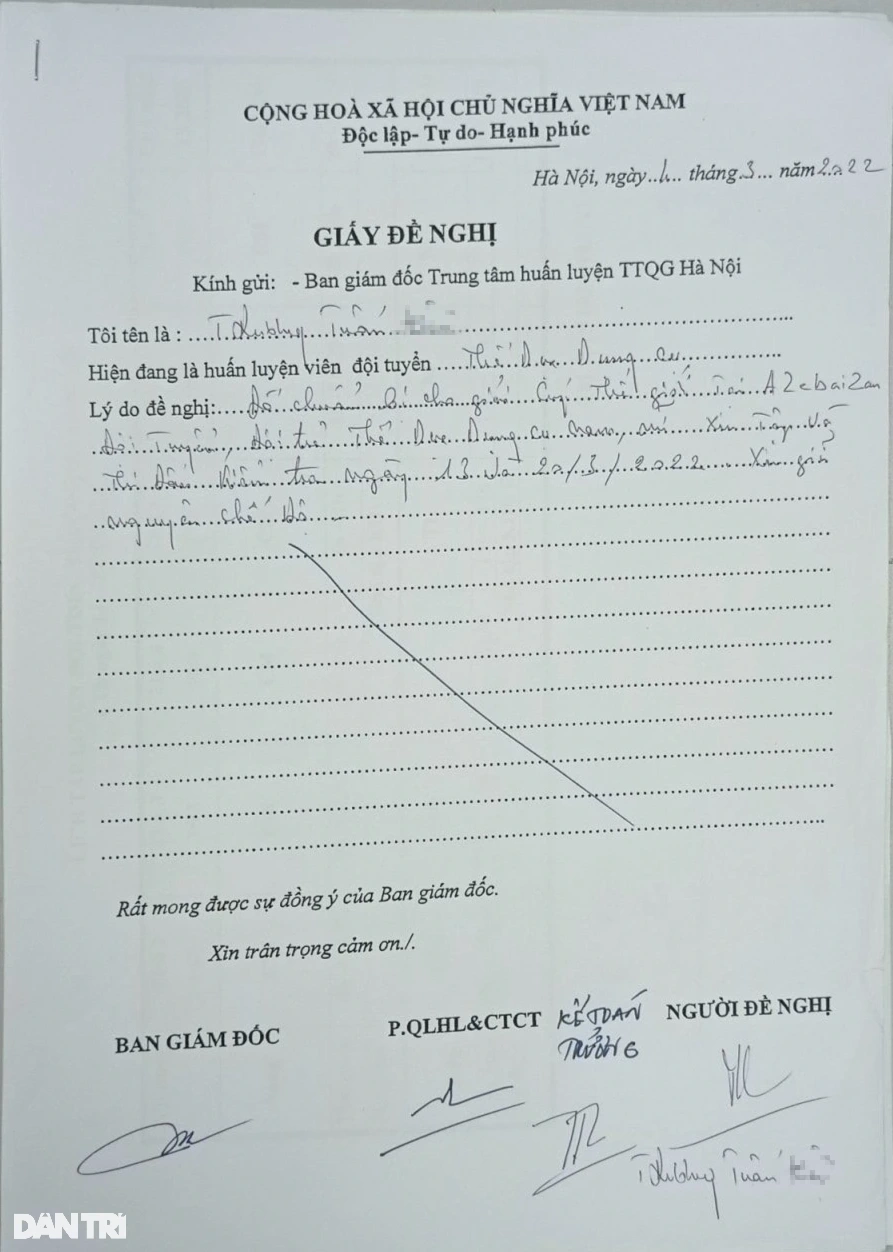 CỘNG HOÀ XÃ HỘI CHỦ NGHĨA VIỆT NAM
Độc lập- Tự do- Hạnh phúc
Hà Nội, ngày..1... tháng.3... năm2.022
GIẤY ĐỀ NGHỊ
Kính gửi: - Ban giám đốc Trung tâm huấn luyện TTQG Hà Nội
Tôi tên là : ....Trương Tuấn
Hiện đang là huấn luyện viên đội tuyển ....Thể Dục Dụng cụ
Lý do đề nghị:....Để chuẩn bị cho giải Cúp Thế giới Tại A2ebaizan
Đội Tuyển, Đội trẻ Thể Dục Dụng cụ nam, xin Tập và
Thi Đấu Kiểm tra ngày 13 22/3/2022 Xin giữ
nguyên chế độ
Rất mong được sự đồng ý của Ban giám đốc.
Xin trân trọng cảm ơn./.
BAN GIÁM ĐỐC P.QLHL&CTCT KẾ TOÁN NGƯỜI ĐỀ NGHỊ
TRƯỞNG
Trương Tuấn
DÂN TRÍ